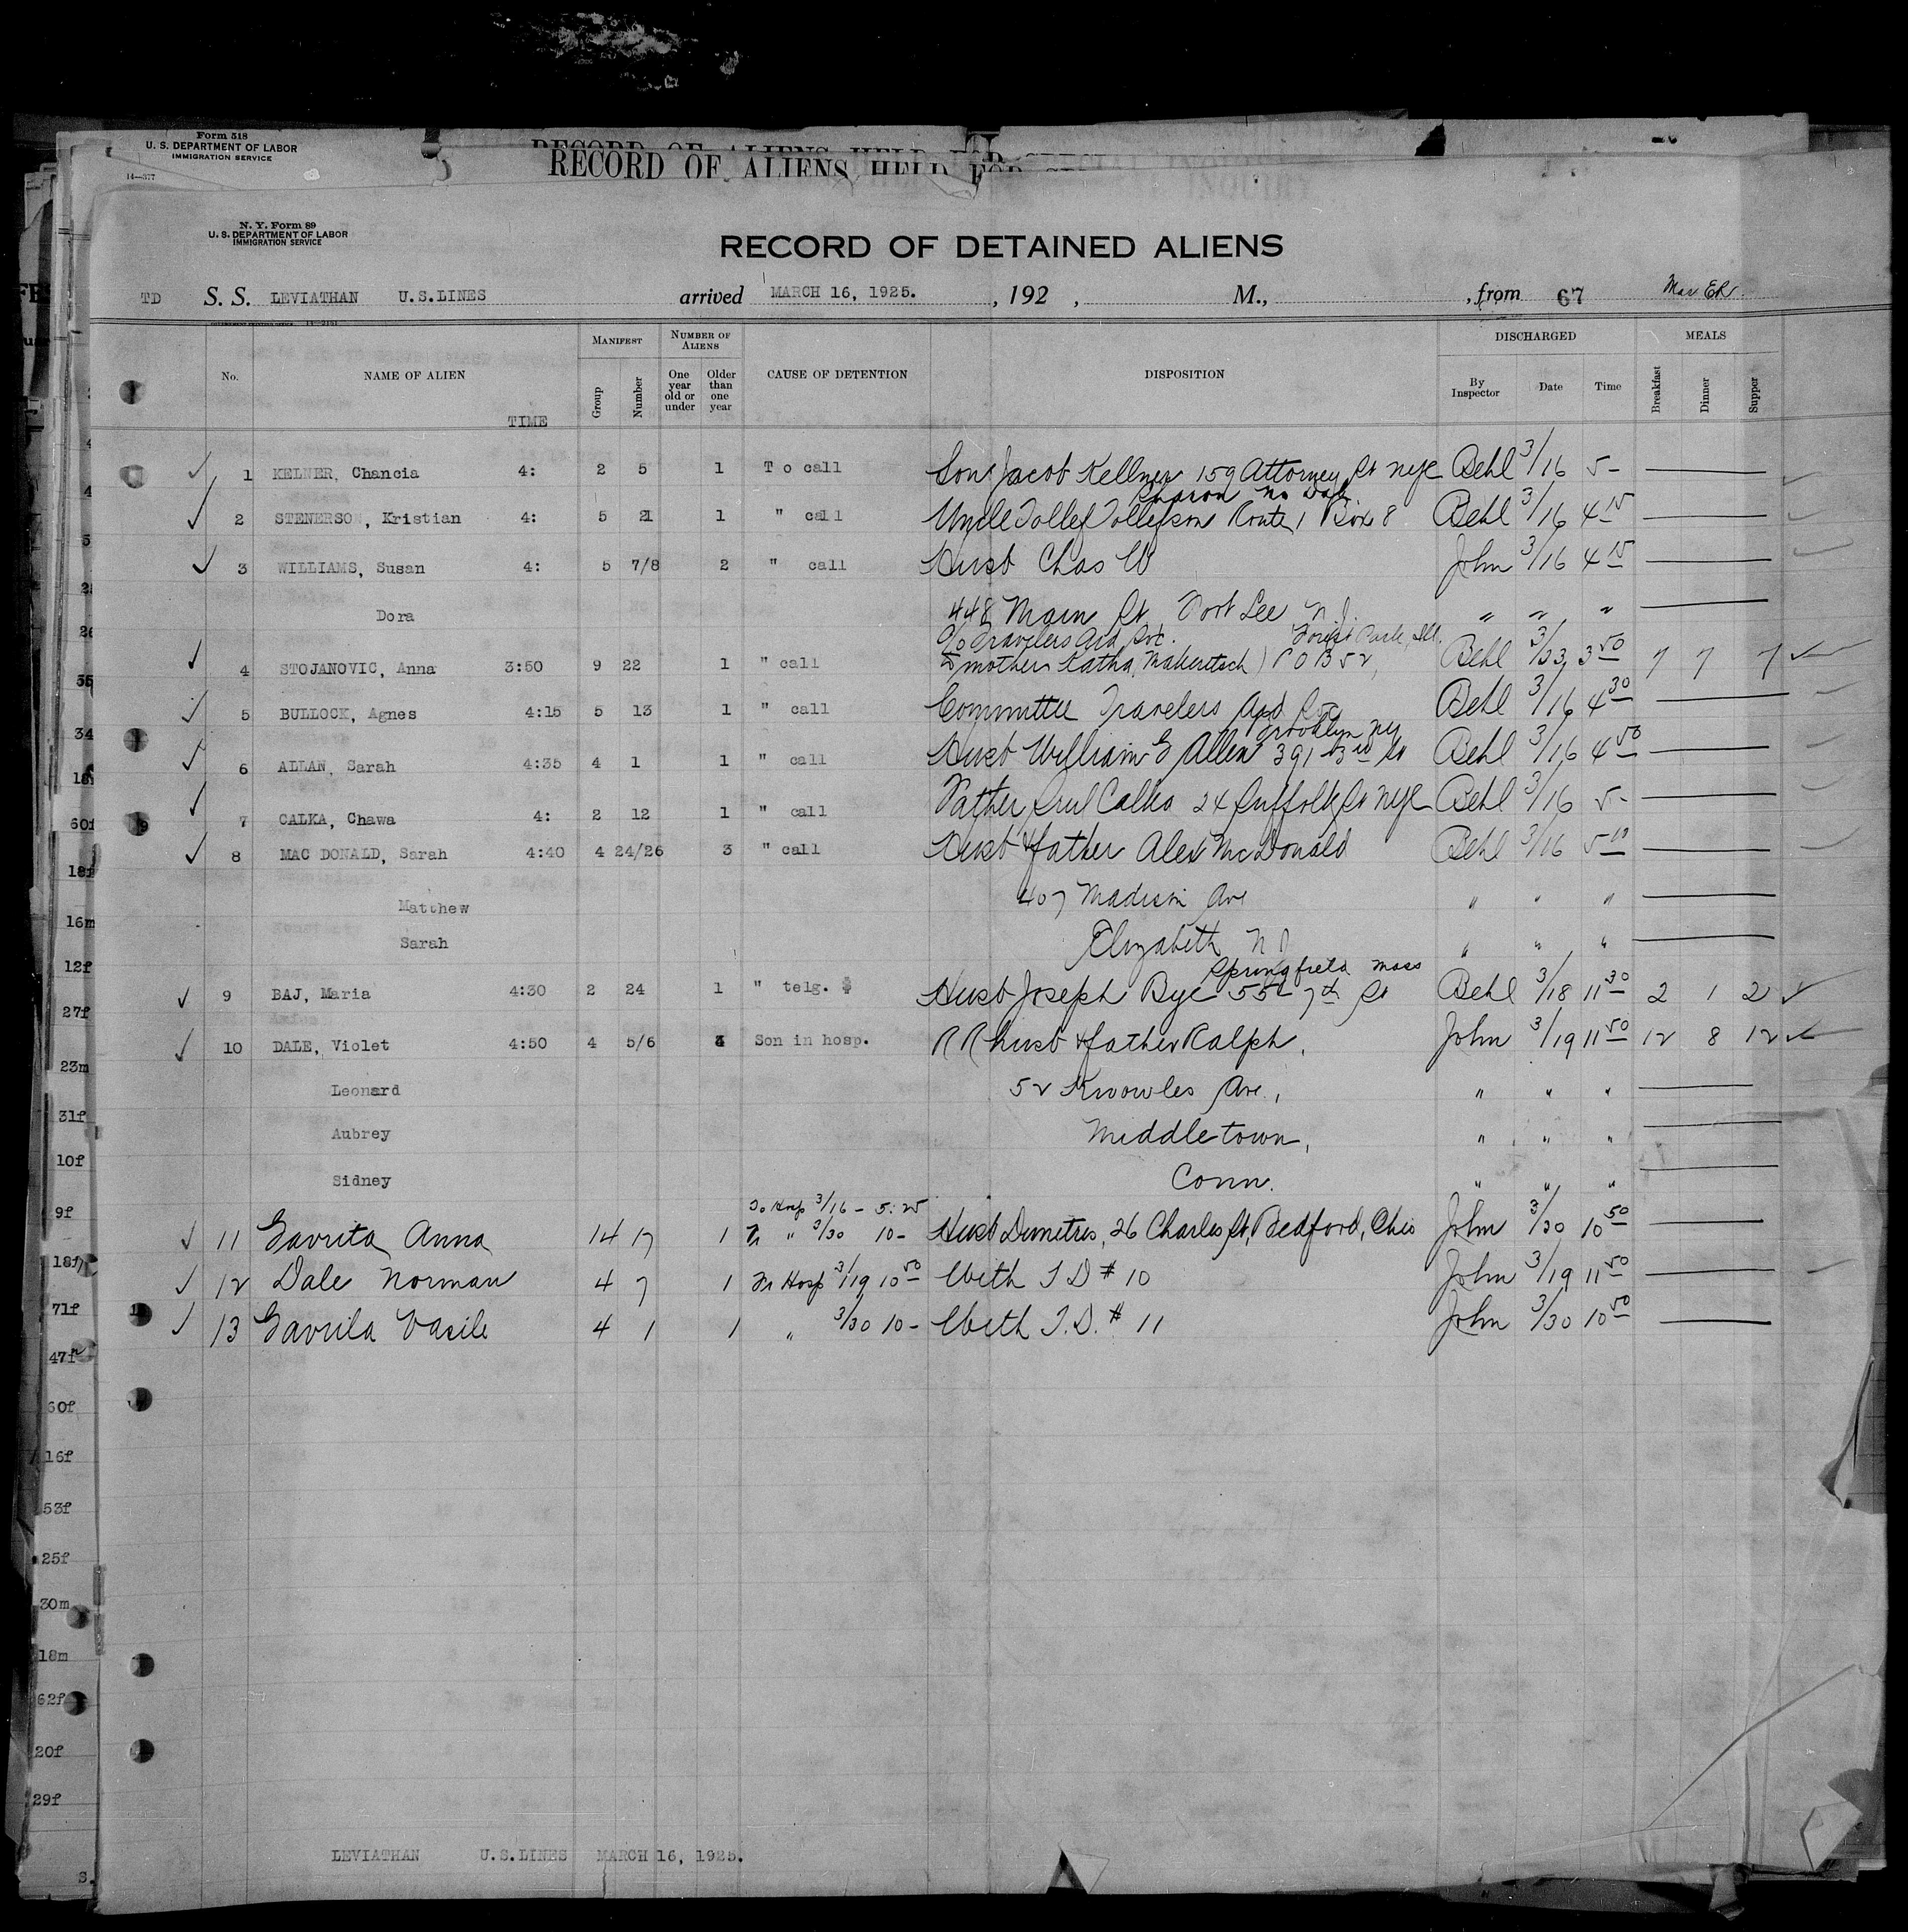 Form 518
U. S. DEPARTMENT OF LABOR
IMMIGRATION SERVICE
14—377
RECORD OF ALIENS HELD FOR
INQUIRY
N. Y. Form 89
U. S. DEPARTMENT OF LABOR
IMMIGRATION SERVICE
RECORD OF DETAINED ALIENS
TD S. S. LEVIATHAN U.S.LINES arrived MARCH 16, 1925. , 192 , M., , from 67
No. NAME OF ALIEN TIME MANIFEST Group Number NUMBER OF ALIENS One year old or under Older than one year CAUSE OF DETENTION DISPOSITION DISCHARGED By Inspector Date Time MEALS Breakfast Dinner Supper
1 KELNER, Chancia 4: 2 5 1 To call Son Jacob Kellner 159 Attorney St NYC Behl 3/16 5-
Sharon No Dak
2 STENERSON, Kristian 4: 5 21 1 " call Uncle Tollef Tollefson Route 1 Box 8 Behl 3/16 4 15
3 WILLIAMS, Susan 4: 5 7/8 2 " call Husb Chas W John 3/16 4 15
Dora 448 Main St Fort Lee N.J. " " "
c/o Travelers Aid Soc. Forest Park, Ill.
4 STOJANOVIC, Anna 3:50 9 22 1 " call mother Katha ) P O B 52, Behl 3/23 3 50 7 7 7
5 BULLOCK, Agnes 4:15 5 13 1 " call Committee Travelers Aid Soc Behl 3/16 4 30
Brooklyn NY
6 ALLAN, Sarah 4:35 4 1 1 " call Husb William G Allen 391 3rd St Behl 3/16 4 50
7 CALKA, Chawa 4: 2 12 1 " call Father Srul Calka 24 Suffolk St NYC Behl 3/16 5-
8 MAC DONALD, Sarah 4:40 4 24/26 3 " call Husb & father Alex McDonald Behl 3/16 5 10
Matthew 407 Madison Ave " " "
Sarah Elizabeth N J " " "
Springfield Mass
9 BAJ, Maria 4:30 2 24 1 " telg. $ Husb Joseph Byc 55 7th St Behl 3/18 11 30 2 1 2
10 DALE, Violet 4:50 4 5/6 4 Son in hosp. R R husb & father Ralph, John 3/19 11 50 12 8 12
Leonard 52 Knowles Ave., " " "
Aubrey Middletown, " " "
Sidney Conn. " " "
To Hosp 3/16 - 5:25
11 Gavrita Anna 14 17 1 Fr " 3/30 10- Husb Dumetres, 26 Charles St, Bedford, Ohio John 3/30 10 50
12 Dale Norman 4 7 1 Fr Hosp 3/19 10 50 With T D # 10 John 3/19 11 50
13 Gavrila Vasile 4 1 1 " 3/30 10- With T.D. # 11 John 3/30 10 50
LEVIATHAN U.S.LINES MARCH 16, 1925.